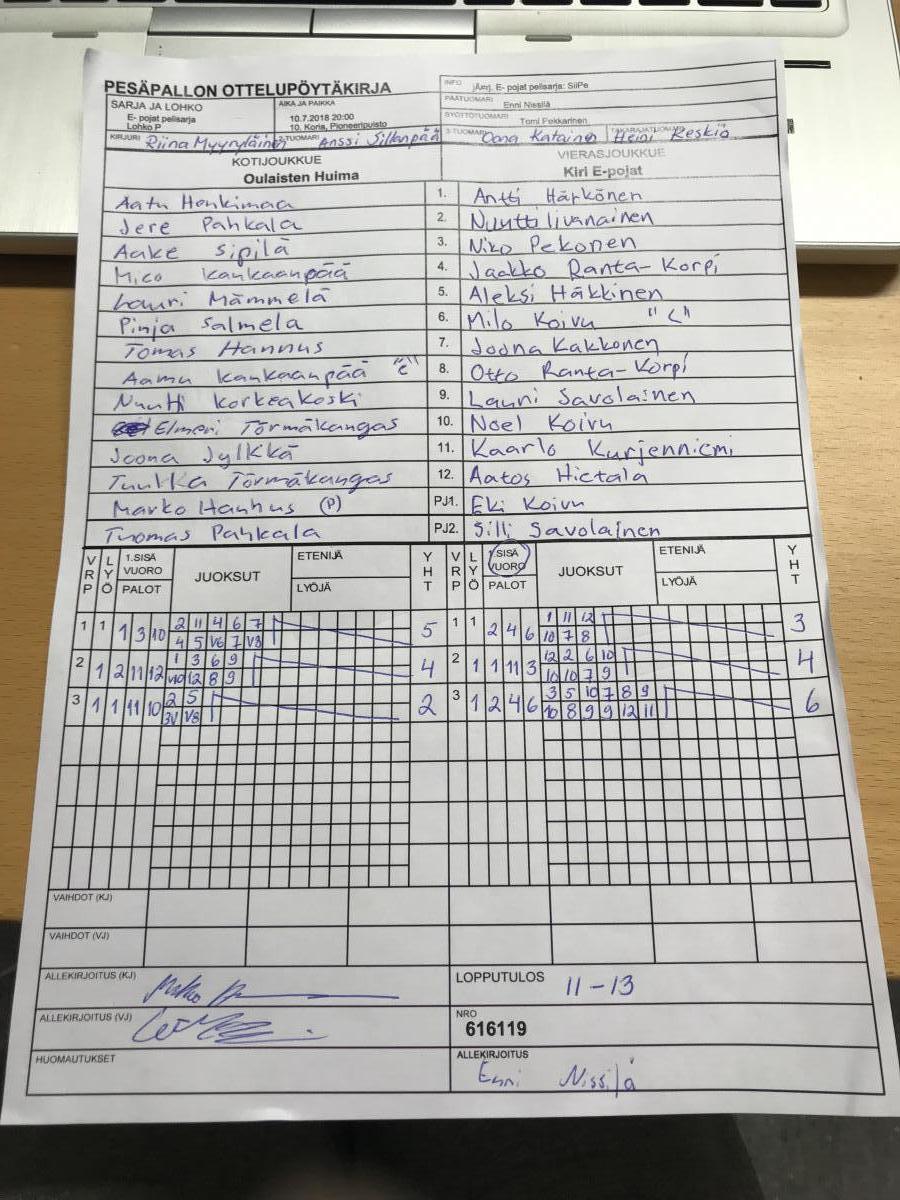 PESÄPALLON OTTELUPÖYTÄKIRJA
INFO jÄrrj. E- pojat pelisarja: SiiPe
SARJA JA LOHKO
E- pojat pelisarja
Lohko P
AIKA JA PAIKKA
10.7.2018 20:00
10. Koria, Pioneeripuisto
PÄÄTUOMARI Enni Nissilä
SYÖTTÖTUOMARI Tomi Pekkarinen
KIRJURI Riina Myyryläinen 2-TUOMARI Anssi Siltanpää 3-TUOMARI Oona Katainen TAKARAJATUOMARI Heini Keskiö
KOTIJOUKKUE
Oulaisten Huima
VIERASJOUKKUE
Kiri E-pojat
Aatu Honkimaa 1. Antti Härkönen
Jere Pahkala 2. Nuutti Iivanainen
Aake Sipilä 3. Niko Pekonen
Mico Kankaanpää 4. Jaakko Ranta-Korpi
Lauri Mämmelä 5. Aleksi Häkkinen
Pinja Salmela 6. Milo Koivu "C"
Tomas Hannus 7. Joona Kakkonen
Aamu Kankaanpää "C" 8. Otto Ranta-Korpi
Nuutti Korkeakoski 9. Lauri Savolainen
Elmeri Törmäkangas 10. Noel Koivu
Joona Jylkkä 11. Kaarlo Kurjenniemi
Tuulka Törmäkangas 12. Aatos Hietala
Marko Hannus (P) PJ1. Eki Koivu
Tuomas Pahkala PJ2. Silli Savolainen
VRP LYÖ 1.SISÄ VUORO PALOT JUOKSUT ETENIJÄ LYÖJÄ YHT VRP LYÖ SISÄ VUORO PALOT JUOKSUT ETENIJÄ LYÖJÄ YHT
1 1 1 3 10 2 11 4 6 7 5 1 1 2 4 6 1 11 12 3
4 5 V6 7 V8 10 7 8
2 1 2 11 12 1 3 6 9 4 2 1 1 11 3 12 2 6 10 4
V10 12 8 9 10 10 7 9
3 1 1 11 10 2 5 2 3 1 2 4 6 3 5 10 7 8 9 6
3V V8 10 8 9 9 12 11
VAIHDOT (KJ)
VAIHDOT (VJ)
ALLEKIRJOITUS (KJ)
LOPPUTULOS 11-13
ALLEKIRJOITUS (VJ)
NRO
616119
HUOMAUTUKSET
ALLEKIRJOITUS
Enni Nissilä